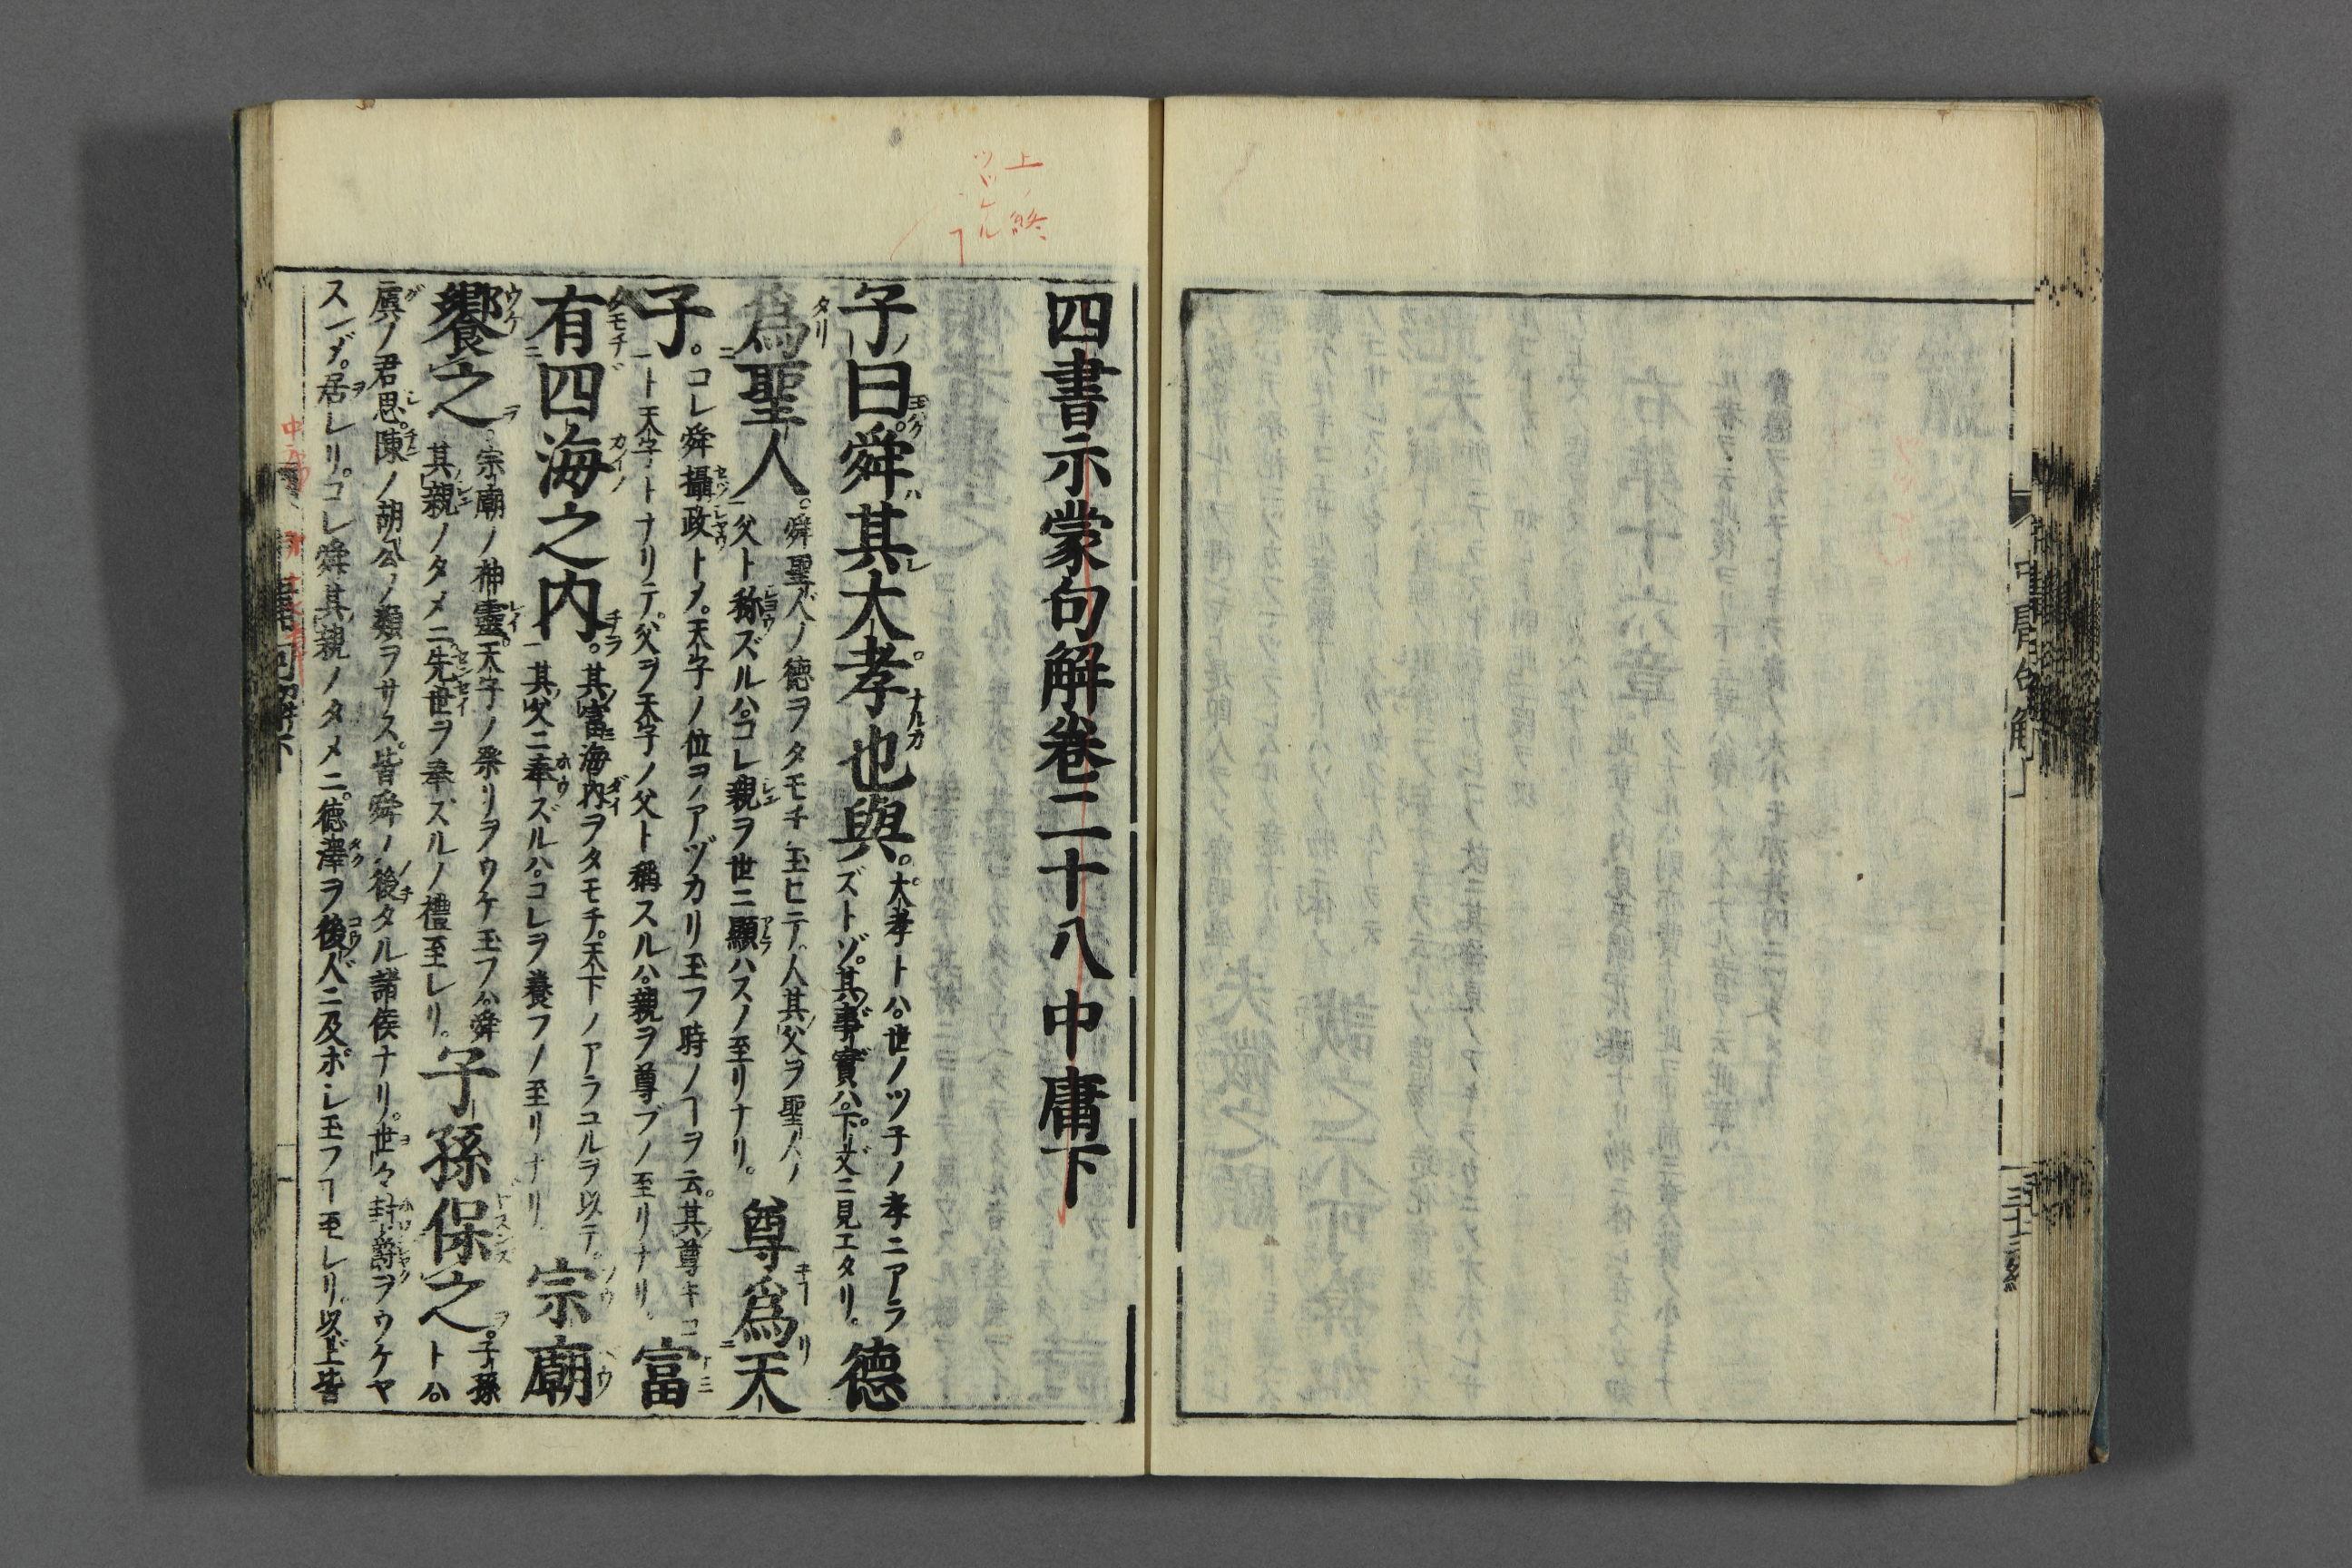 四書示蒙句解卷二十八中庸下
子曰舜其大孝也與。大孝トハ。世ノツ子ノ孝ニアラ
ズトゾ。其事實ハ。下文ニ見エタリ。德
爲聖人。舜聖人ノ德ヲタモチ玉ヒテ。人其父ヲ聖人ノ
父ト称ズルハ。コレ親ヲ世ニ顯ハスノ至リナリ。尊爲天
子。コレ舜攝政トメ。天子ノ位ヲアヅカリ玉フ時ノヿヲ云。其尊キコ
ト天子トナリテ。父ヲ天子ノ父ト稱スルハ。親ヲ尊ブノ至リナリ。富
有四海之内。其富海内ヲタモチ。天下ノアラユルヲ以テ。
其父ニ奉ズルハ。コレヲ養フノ至リナリ。宗廟
饗之。宗廟ノ神靈。天子ノ祭リヲウケ玉フハ。舜
其親ノタメニ。先世ヲ奉ズルノ禮至レリ。子孫保之。子孫
トハ
虞ノ君思。陳ノ胡公ノ類ヲサス。皆舜ノ後タル諸侯ナリ。世々封爵ヲウケヤ
スンヂ。居レリ。コレ舜其親ノタメニ。德澤ヲ後人ニ及ボシ玉フヿ至レリ。以上皆
中庸句解
三十二終
上終